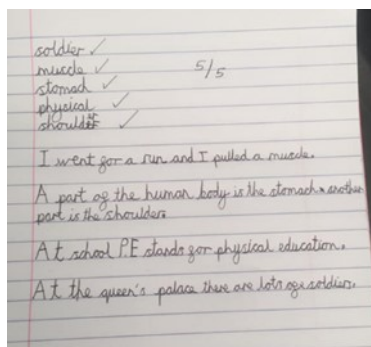 soldier ✓
muscle ✓
5/5
stomach ✓
physical ✓
shoulder ✓
I went for a run and I pulled a muscle.
A part of the human body is the stomach another
part is the shoulder.
At school P.E stands for physical education.
At the queen's palace there are lots of soldiers.